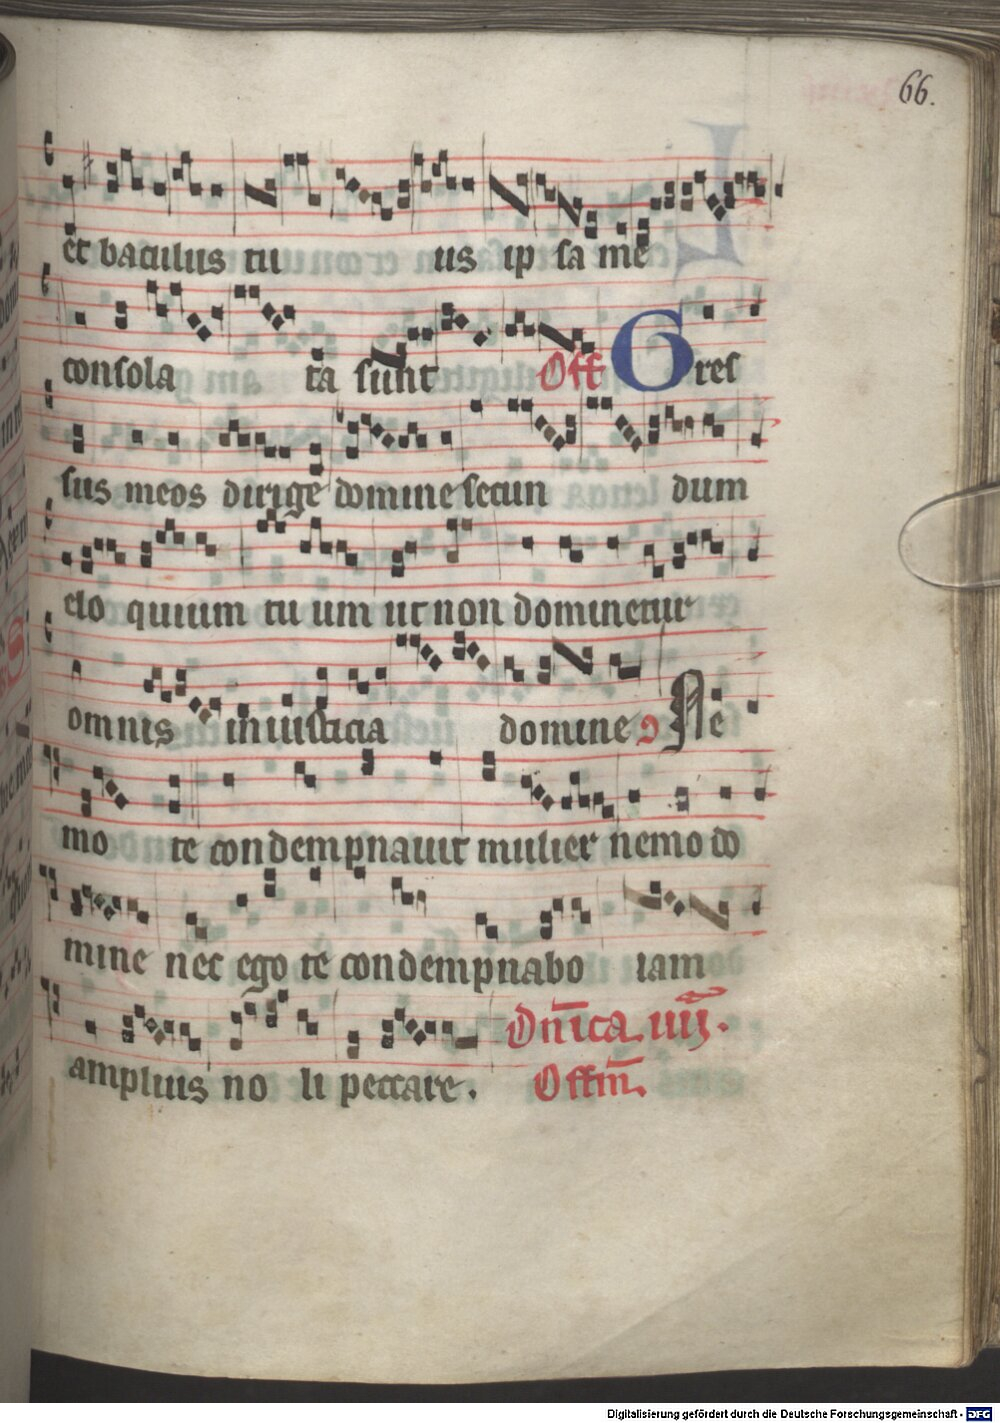 66.
et baculus tu us ip sa me
consola ta sunt Off Gres
sus meos dirige domine secun dum
elo quium tu um ut non dominetur
omnis iniusticia domine Co Ne
mo te condempnauit mulier nemo do
mine nec ego te condempnabo iam
amplius no li peccare. Dn̄ica iiij.
Offm̄.
Digitalisierung gefördert durch die Deutsche Forschungsgemeinschaft - DFG